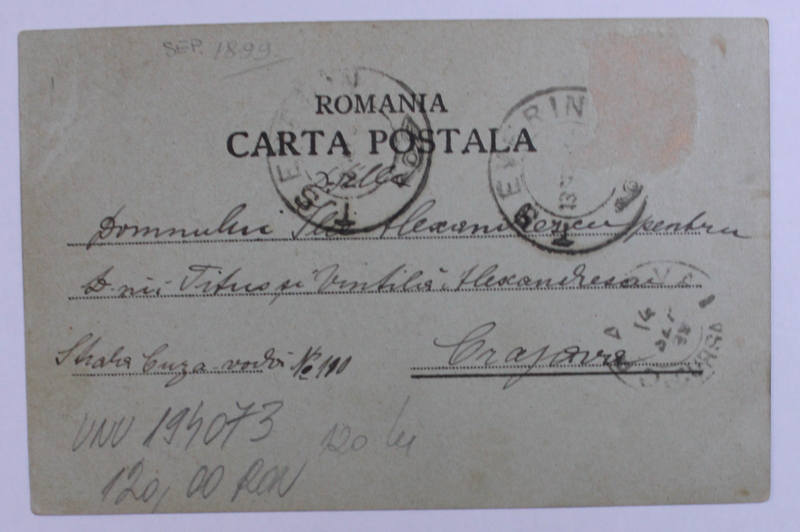 SEP. 1899
ROMANIA
CARTA POSTALA
SEVERIN
T
SEVERIN
T
13
Domnului Ilie Alexandrescu pentru
D-nii Titus și Vintilă Alexandrescu
Strada Cuza vodă No 110
Craiova
14 SEP
UNU 194073
120 lei
120,00 RON